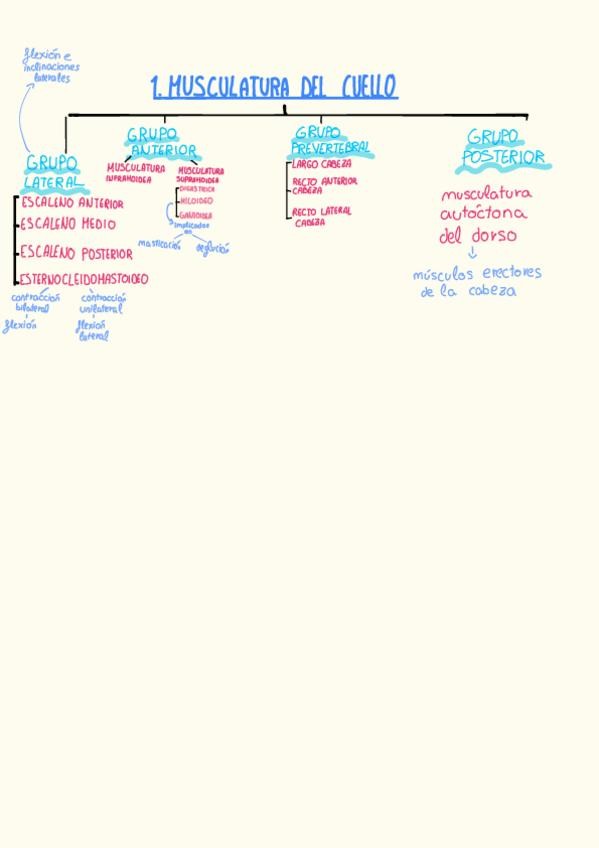 flexión e
inclinaciones
laterales
1. MUSCULATURA DEL CUELLO
GRUPO
LATERAL
ESCALENO ANTERIOR
ESCALENO MEDIO
ESCALENO POSTERIOR
ESTERNOCLEIDOMASTOIDEO
contracción
bilateral
flexión
contracción
unilateral
flexión
lateral
GRUPO
ANTERIOR
MUSCULATURA
INFRAHOIDEA
MUSCULATURA
SUPRAHOIDEA
DIGÁSTRICA
MILOIDEO
implicados
en
masticación
deglución
GRUPO
PREVERTEBRAL
LARGO CABEZA
RECTO ANTERIOR
CABEZA
RECTO LATERAL
CABEZA
GRUPO
POSTERIOR
musculatura
autóctona
del dorso
músculos erectores
de la cabeza